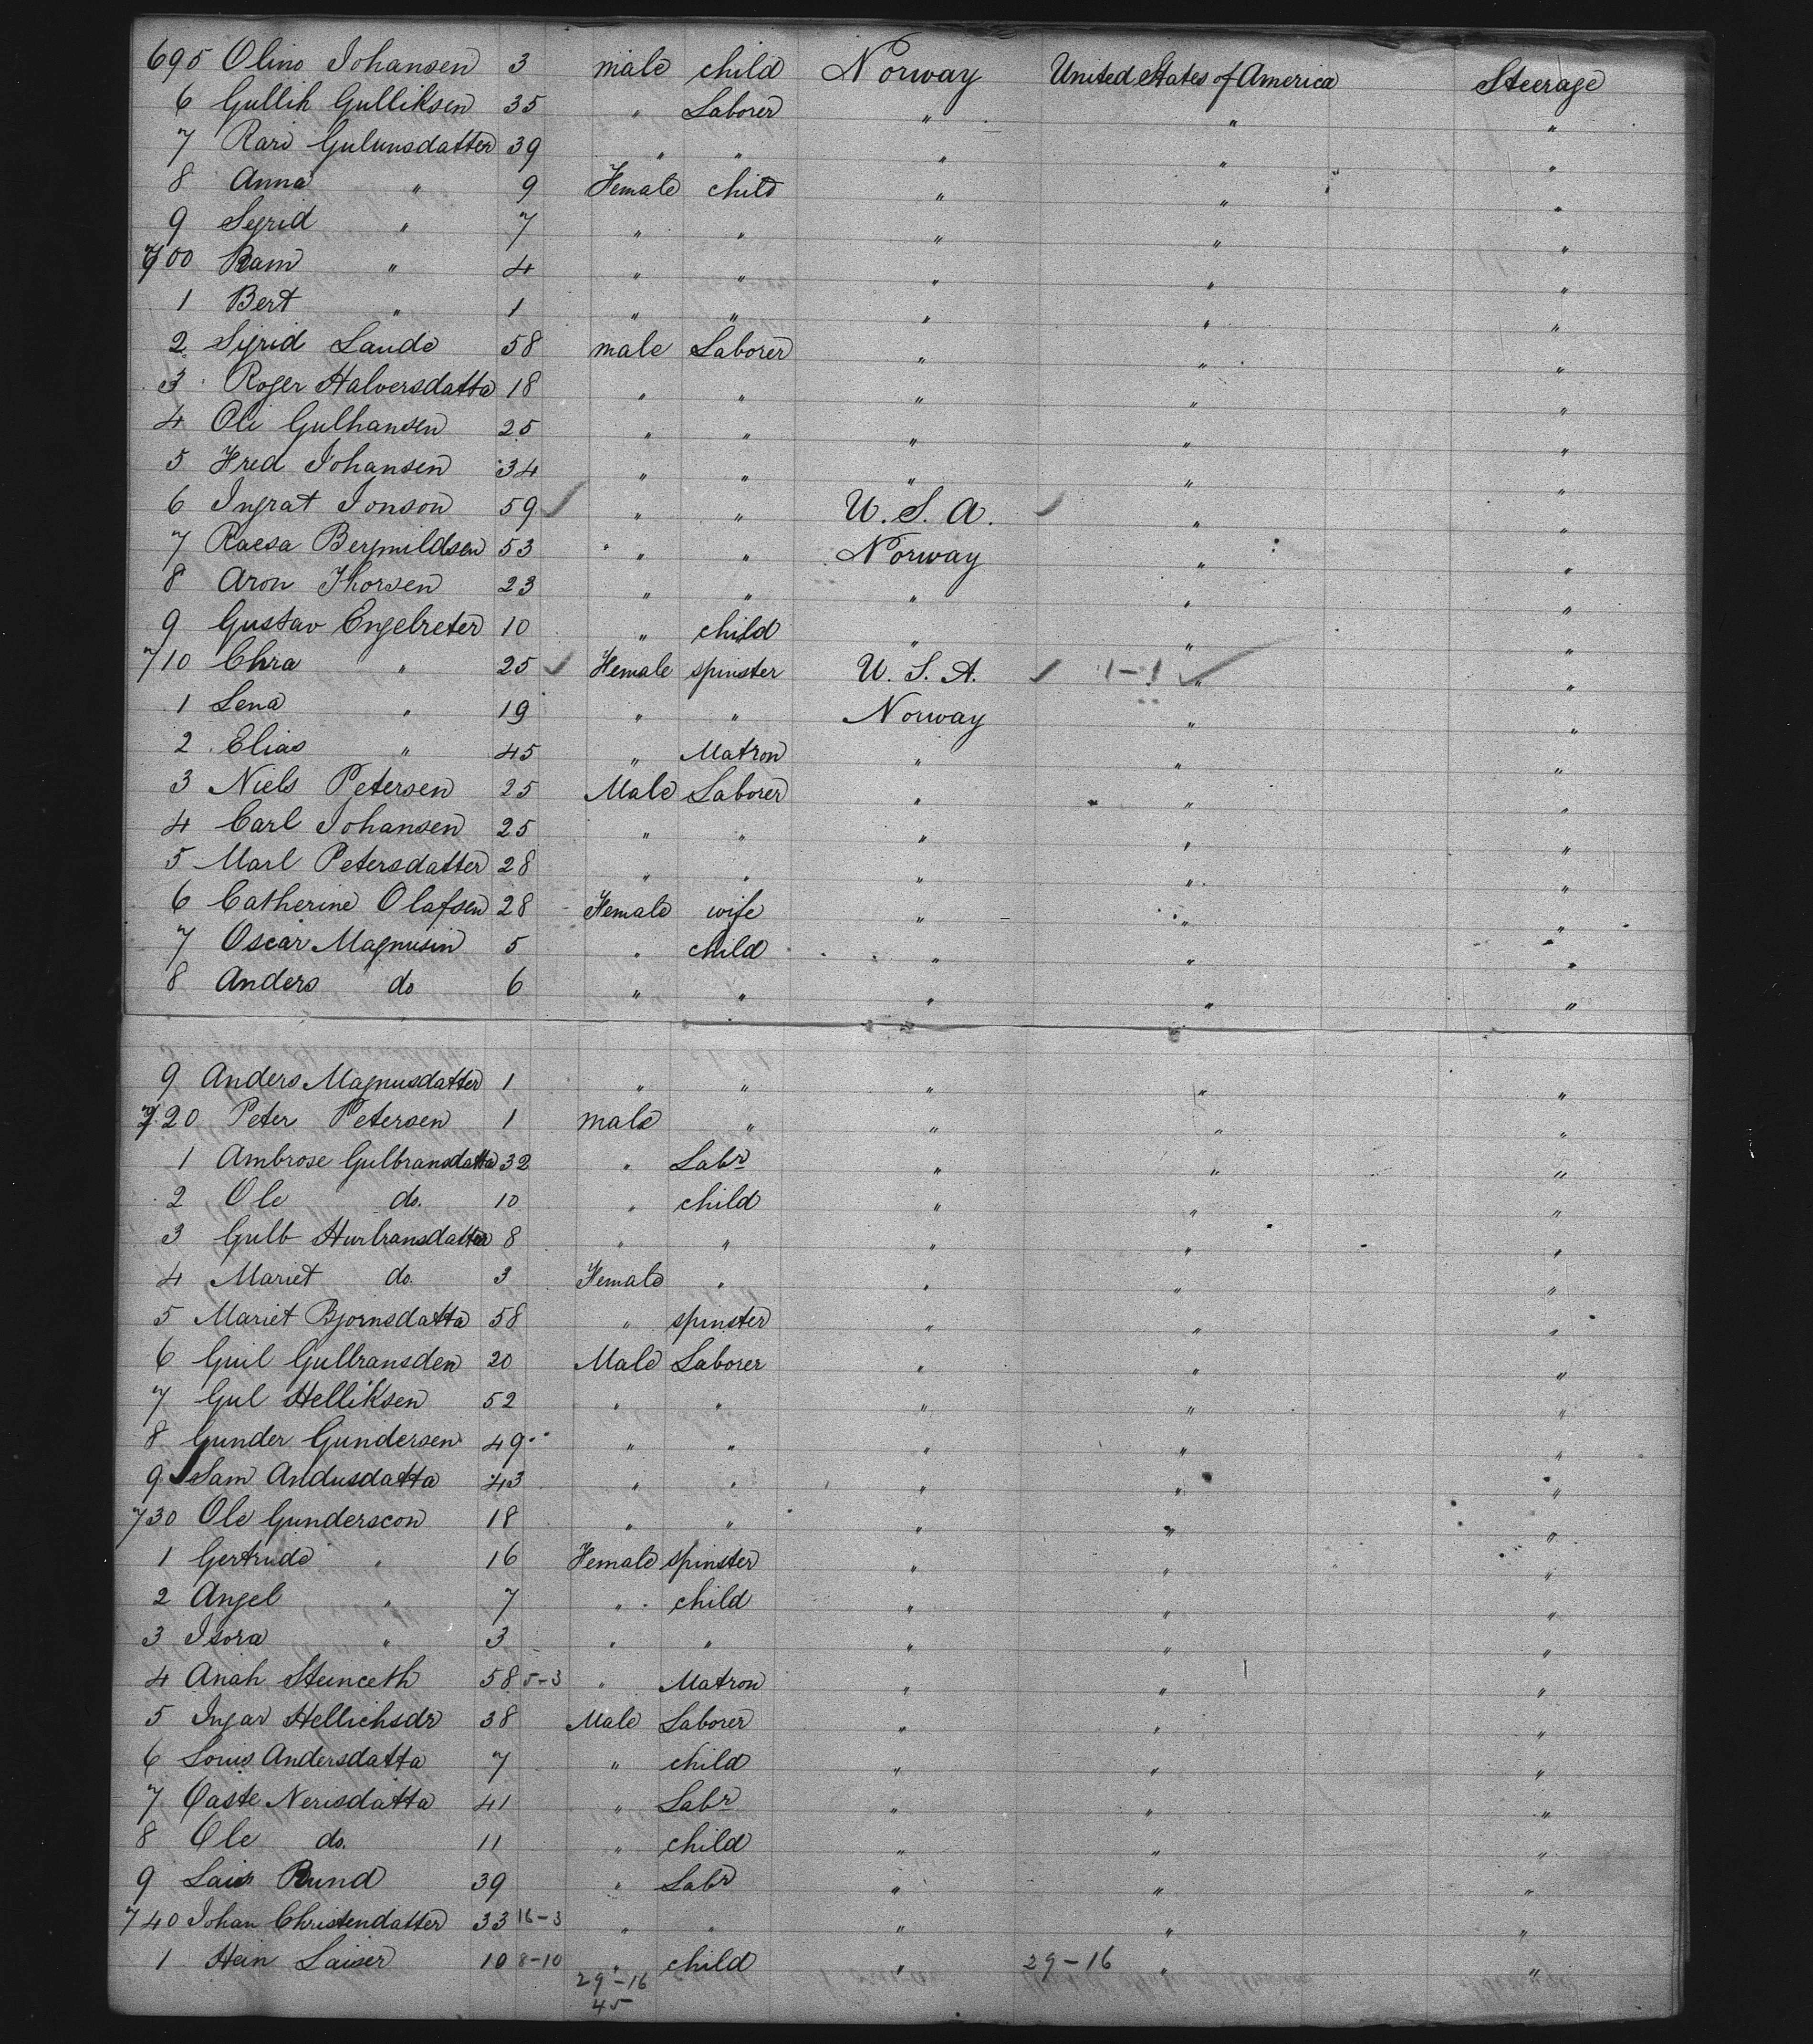 695 Olino Johansen 3 male child Norway United States of America Steerage
6 Gullik Gulliksen 35 " Laborer " " "
7 Rari Gulunsdatter 39 " " " " "
8 Anna " 9 Female child " " "
9 Syrid " 7 " " " " "
700 Ram " 4 " " " " "
1 Bert " 1 " " " " "
2 Syrid Lande 58 male Laborer " " "
3 Roger Halversdatta 18 " " " " "
4 Oli Gulhansen 25 " " " " "
5 Fred Johansen 34 " " " " "
6 Ingrat Jonson 59 " " U. S. A. " "
7 Raesa Bergmildsen 53 " " Norway " "
8 Aron Thorsen 23 " " " " "
9 Gustav Engelreter 10 " child " " "
710 Chra " 25 Female spinster U. S. A. 1-1 " "
1 Lena " 19 " " Norway " "
2 Elias " 45 " Matron " " "
3 Niels Petersen 25 Male Laborer " " "
4 Carl Johansen 25 " " " " "
5 Marl Petersdatter 28 " " " " "
6 Catherine Olafsen 28 Female wife " " "
7 Oscar Magnusin 5 " child " " "
8 Anders do 6 " " " " "
9 Anders Magnusdatter 1 " " " " "
720 Peter Petersen 1 male " " " "
1 Ambrose Gulbransdatta 32 " Labr " " "
2 Ole do. 10 " child " " "
3 Gulb Hurbransdatter 8 " " " " "
4 Mariet do. 3 Female " " " "
5 Mariet Bjornsdatta 58 " spinster " " "
6 Guil Gulbransden 20 Male Laborer " " "
7 Gul Helliksen 52 " " " " "
8 Gunder Gundersen 49 " " " " "
9 Sam Andusdatta 43 " " " " "
730 Ole Gunderscon 18 " " " " "
1 Gertrude " 16 Female spinster " " "
2 Angel " 7 " child " " "
3 Isora " 3 " " " " "
4 Anah Steinceth 58 5-3 " Matron " " "
5 Ingar Hellichsdr 38 Male Laborer " " "
6 Louis Andersdatta 7 " child " " "
7 Oaste Nerisdatta 41 " Labr " " "
8 Ole do. 11 " child " " "
9 Lais Rund 39 " Labr " " "
740 Johan Christendatter 33 16-3 " " " " "
1 Hein Laiser 10 8-10 " child " 29-16 " "
29-16
45